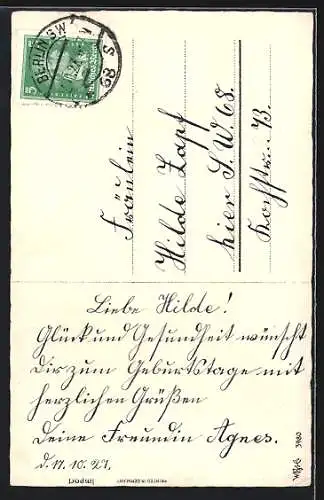 BERLIN SW
S 89
Fräulein
Hilde Zapf
hier S. W. 68.
Kochstr.
Liebe Hilde!
Glück und Gesundheit wünscht
dir zum Geburtstage mit
herzlichen Grüßen
Deine Freundin Agnes.
d. 11. 10. 27.
Import
3980